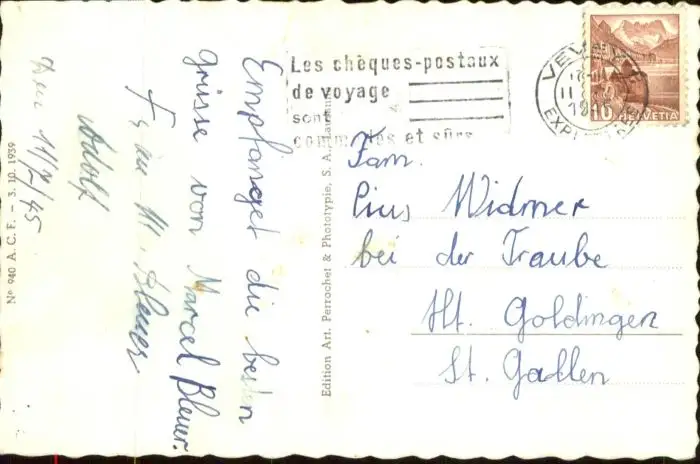 Les chèques-postaux
de voyage
sont
commodes et sûrs
VEVEY
EXP
10 HELVETIA
Fam.
Pius Widmer
bei der Traube
Ht. Goldingen
St. Gallen
Empfanget die besten
grüsse von Marcel Bleuer.
M. Bleuer
Adolf
Den 11/7/45
Edition Art. Perrochet & Phototypie, S. A., Lausanne
Nº 940 A. C. F. — 3. 10. 1939